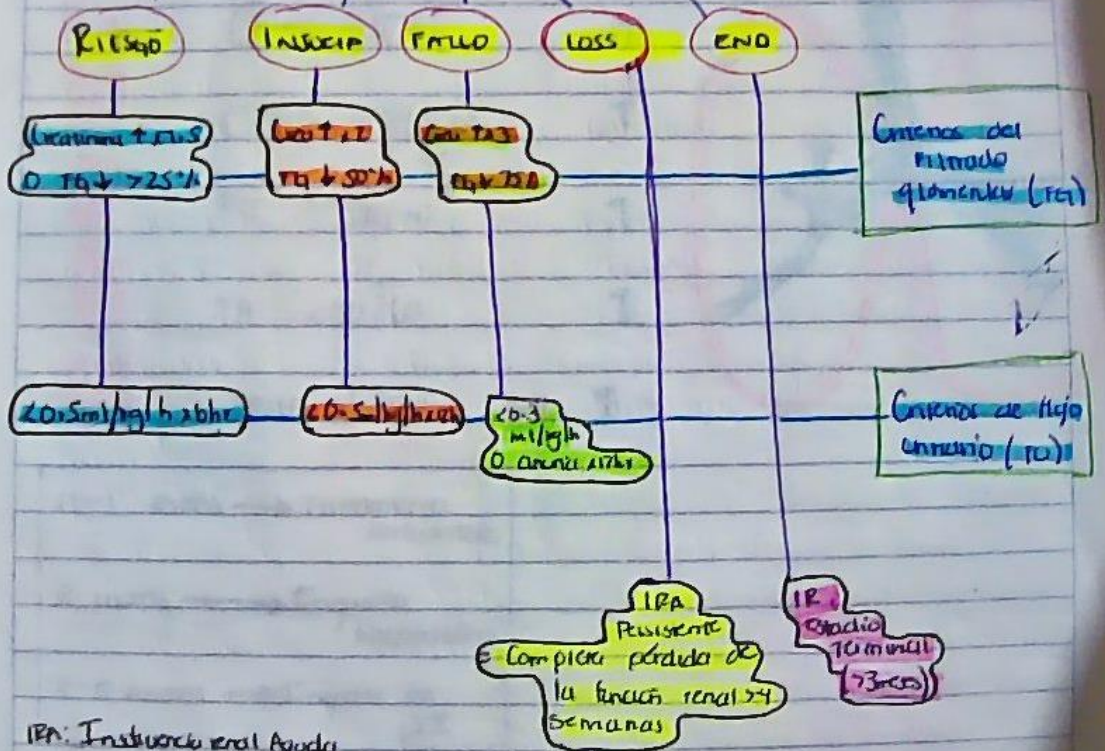 RIESGO
INSUFIA
FALLO
LOSS
END
Creatinina ↑ x1.5
O FG ↓ >25%
Crea ↑ x2
FG ↓ 50%
Crea ↑ x3
FG ↓ 75%
Criterios del
filtrado
glomerular (FG)
<0.5ml/kg/h x6hr
<0.5 /kg/h
<0.3
ml/kg/h
O anuria x12hr
Criterios de flujo
urinario
IRA
Persistente
= Completa pérdida de
la función renal >4
semanas
IR
Estadio
Terminal
(>3meses)
IRA: renal Aguda